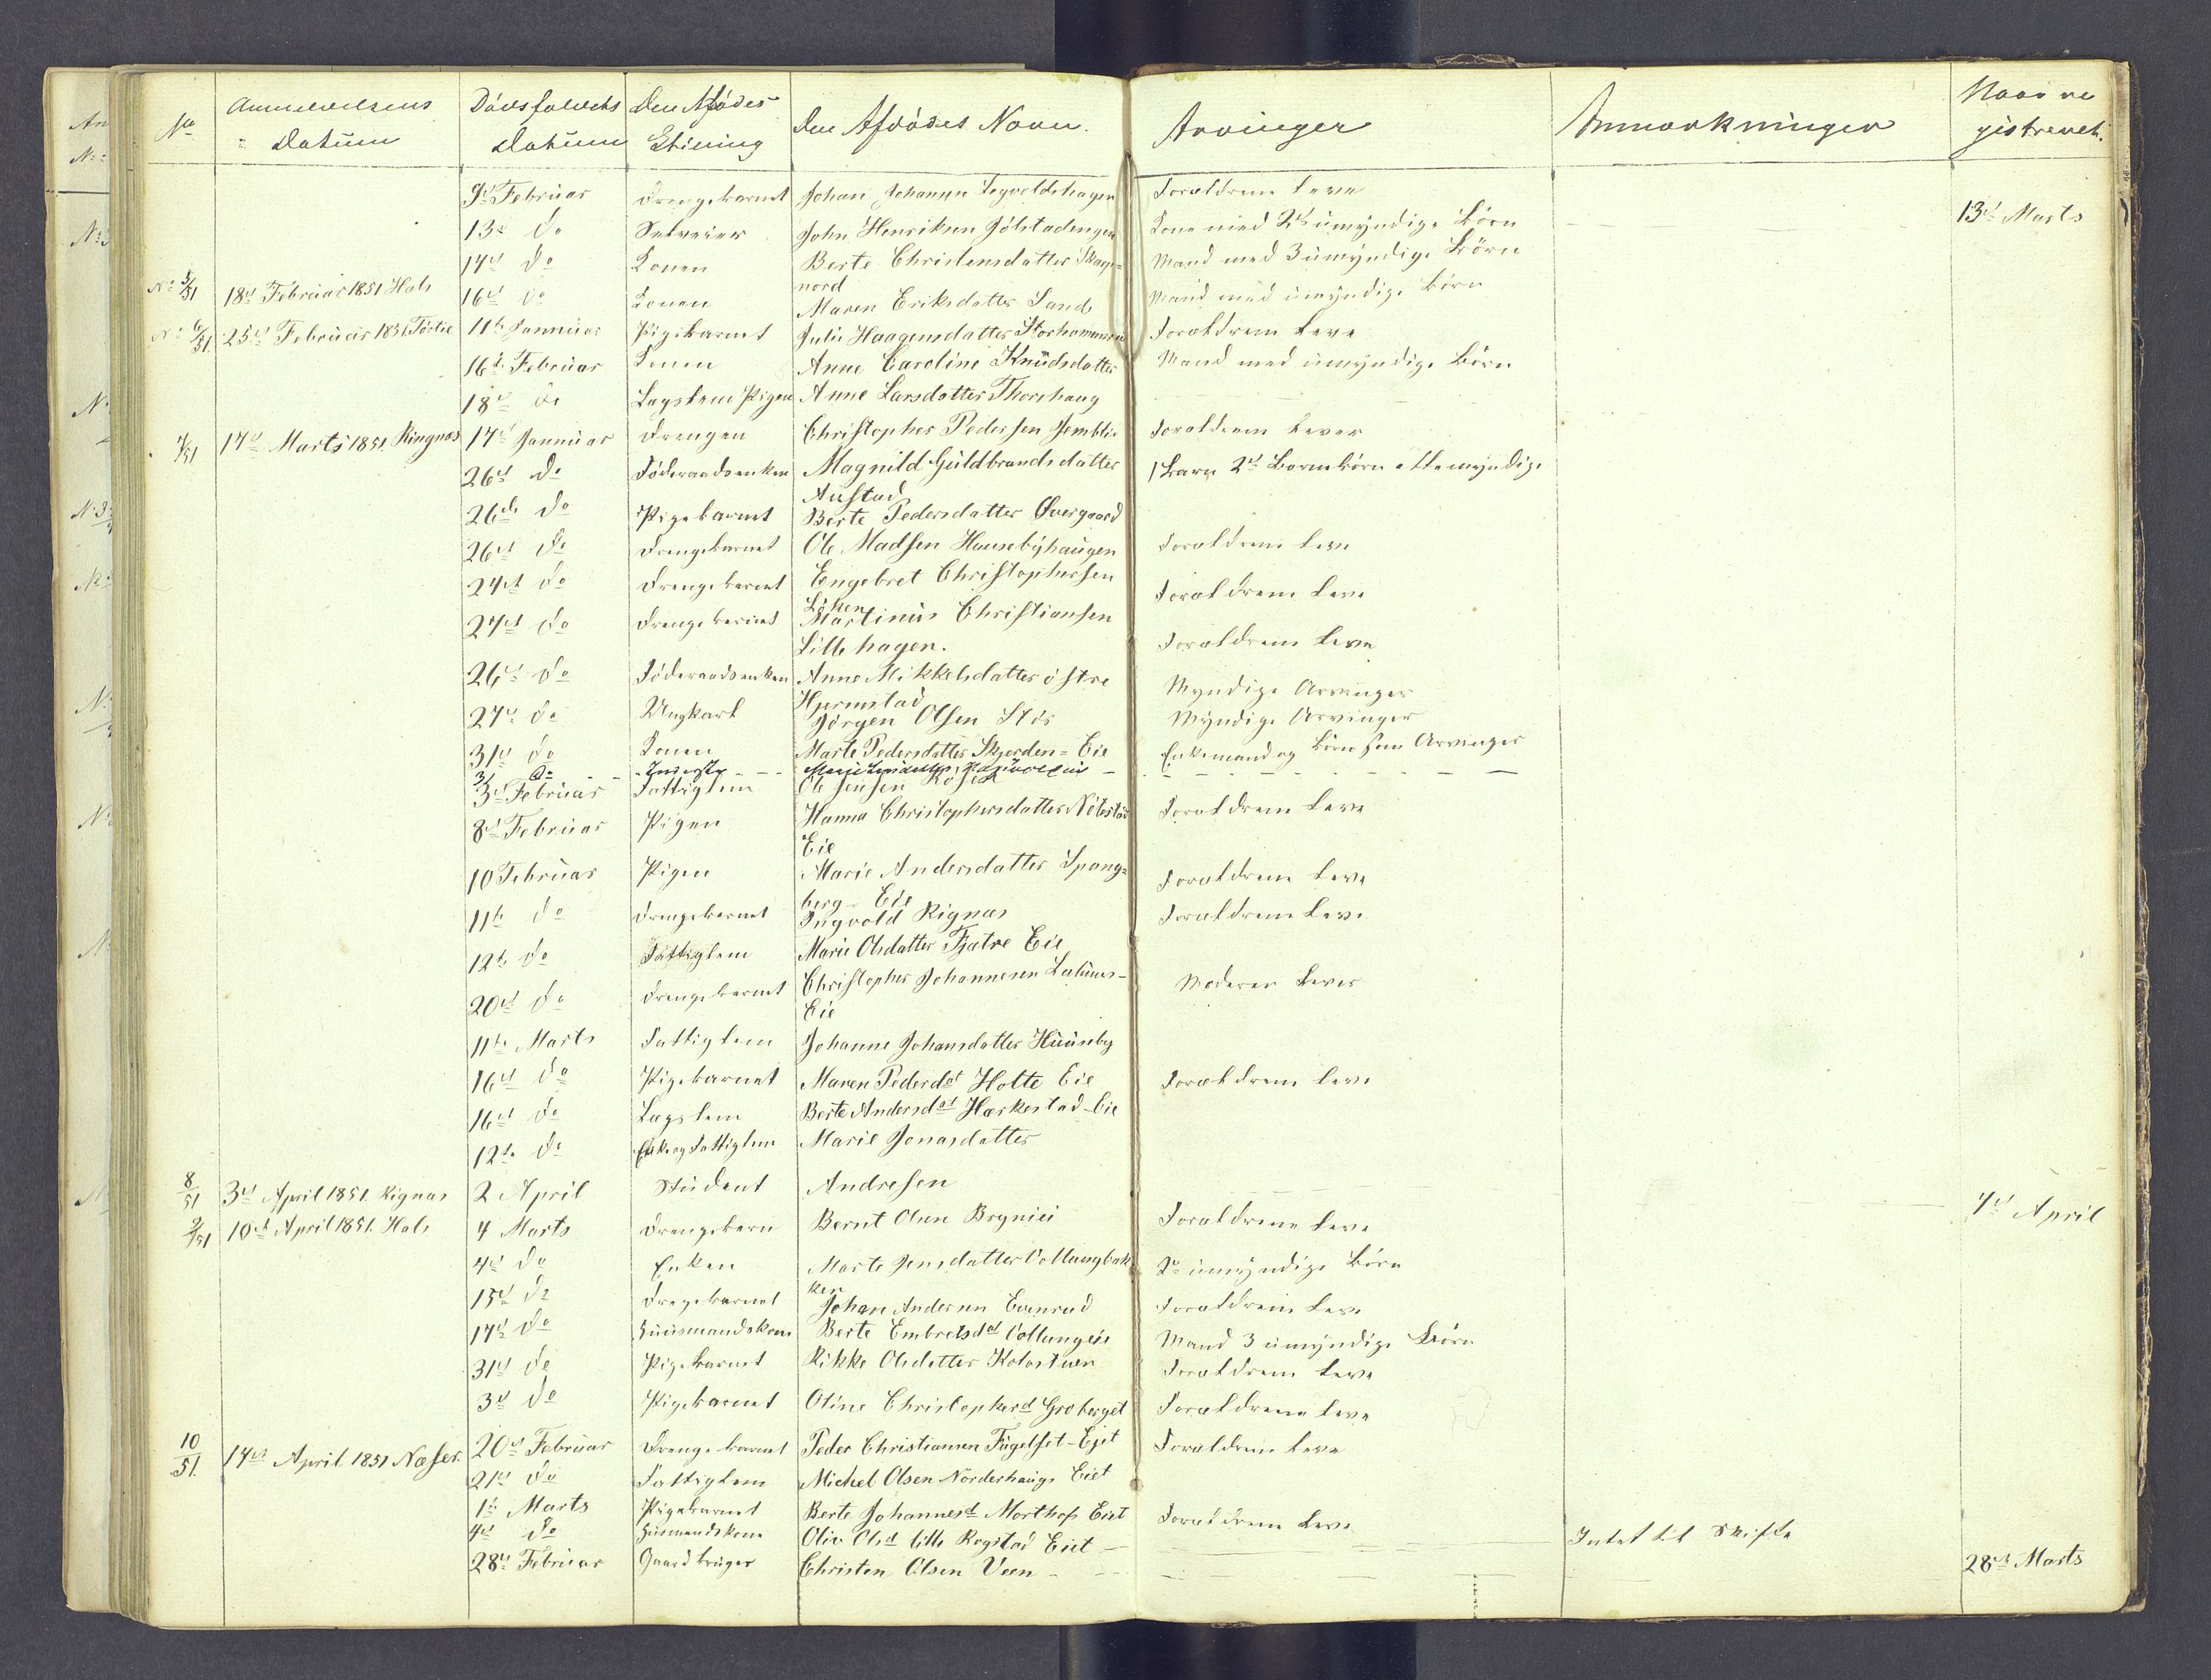 No Anmeldelsens Datum Dödsfaldets Datum Den Afdödes Stilling Den Afdödes Navn. Arvinger Anmærkninger Naar registreret.
9d Februar Drengebarnet Johan Johannesen Forældrene leve
13d do Selveier John Henriksen Jölstadengen Kone med 2de umyndige Börn 13d Marts
14d do Konen Berte Christensdatter Skarpnord Mand med 3 umyndige Börn
No 5/51 18d Februar 1851 Hals 16d do Konen Maren Eriksdatter Sand Mand med umyndige Börn
No 6/51. 25d Februar 1851 11te Januar Pigebarnet Julie Haagensdatter Storhammeren Forældrene leve
16d Februar Konen Anne Caroline Knudsdatter Mand med umyndige Börn
18d do Lægslem Pigen Anne Larsdatter Thorshaug
7/51 17d Marts 1851. Ringnæs 17d Januar Drengen Christopher Pedersen Forældrene lever
26d do Föderaadsenken Magnild Guldbrandsdatter Austad 1 Barn 2de Börnebörn alle myndige
26de do Pigebarnet Berte Pedersdatter Övergaard
26d do Drengebarnet Ole Madsen Hausebyhaugen Forældrene leve
24d do Drengebarnet Engebret Christophersen Löken Forældrene leve
27d do Drengebarnet Martinus Christiansen Lillehagen. Forældrene leve
26d do Föderaadsenken Anne Mikkelsdatter östre Hjermstad Myndige Arvinger
27d do Ungkarl Jörgen Olsen Myndige Arvinger
31d do Konen Marte Pedersdatter Skjerden=Eie Enkemand og Börn som Arvinger
31 do
3d Februar Fattiglem Ole Jensen
8d Februar Pigen Hanna Christophersdatter Eie Forældrene leve
10 Februar Pigen Marie Andersdatter Spangberg-Eie Forældrene leve
11te do Drengebarnet Ingvold Rignæs Forældrene leve
12te do Fattiglem Marie Olsdatter Fjætre Eie
20d do Drengebarnet Christopher Johannesen Eie Moderen lever
11te Marts Fattiglem Johanne Johansdatter Huuseby
16d do Pigebarnet Maren Pedersdat Holte Eie Forældrene leve
16d do Lægslem Berte Andersdat Harkestad-Eie
12te do Enke og Fattiglem Marie Jonasdatter
8/51 3d April 1851. Rignæs 2 April Student Andresen 4d April
9/51 10d April 1851. Hals 4 Marts Drengebarn Bernt Olsen Forældrene leve
4d do Enken Marte Jensdatter Collungbakken 2 umyndige Börn
15d do Drengebarnet Johan Andersen Evensrud Forældrene leve
17d do Huusmandskone Berte Embretsdat Collungeie Mand 3 umyndige Börn
31d do Pigebarnet Rikke Olsdatter Kolostuen Forældrene leve
3d do Pigebarnet Oline Christophersd Groberget Forældrene leve
10/51. 14d April 1851 Næser. 20d Februar Drengebarnet Peder Christiansen Fugelset-Ejet Forældrene leve
21d do Fattiglem Michel Olsen Nörderhaugs Eiet
1te Marts Pigebarnet Berte Johannesd Morthofs Eiet Forældrene leve
4d do Husmandskone Oliv Olsd lille Rogstad Eiet Intet til Skifte
28d Februar Gaardbruger Christen Olsen Veen 28d Marts